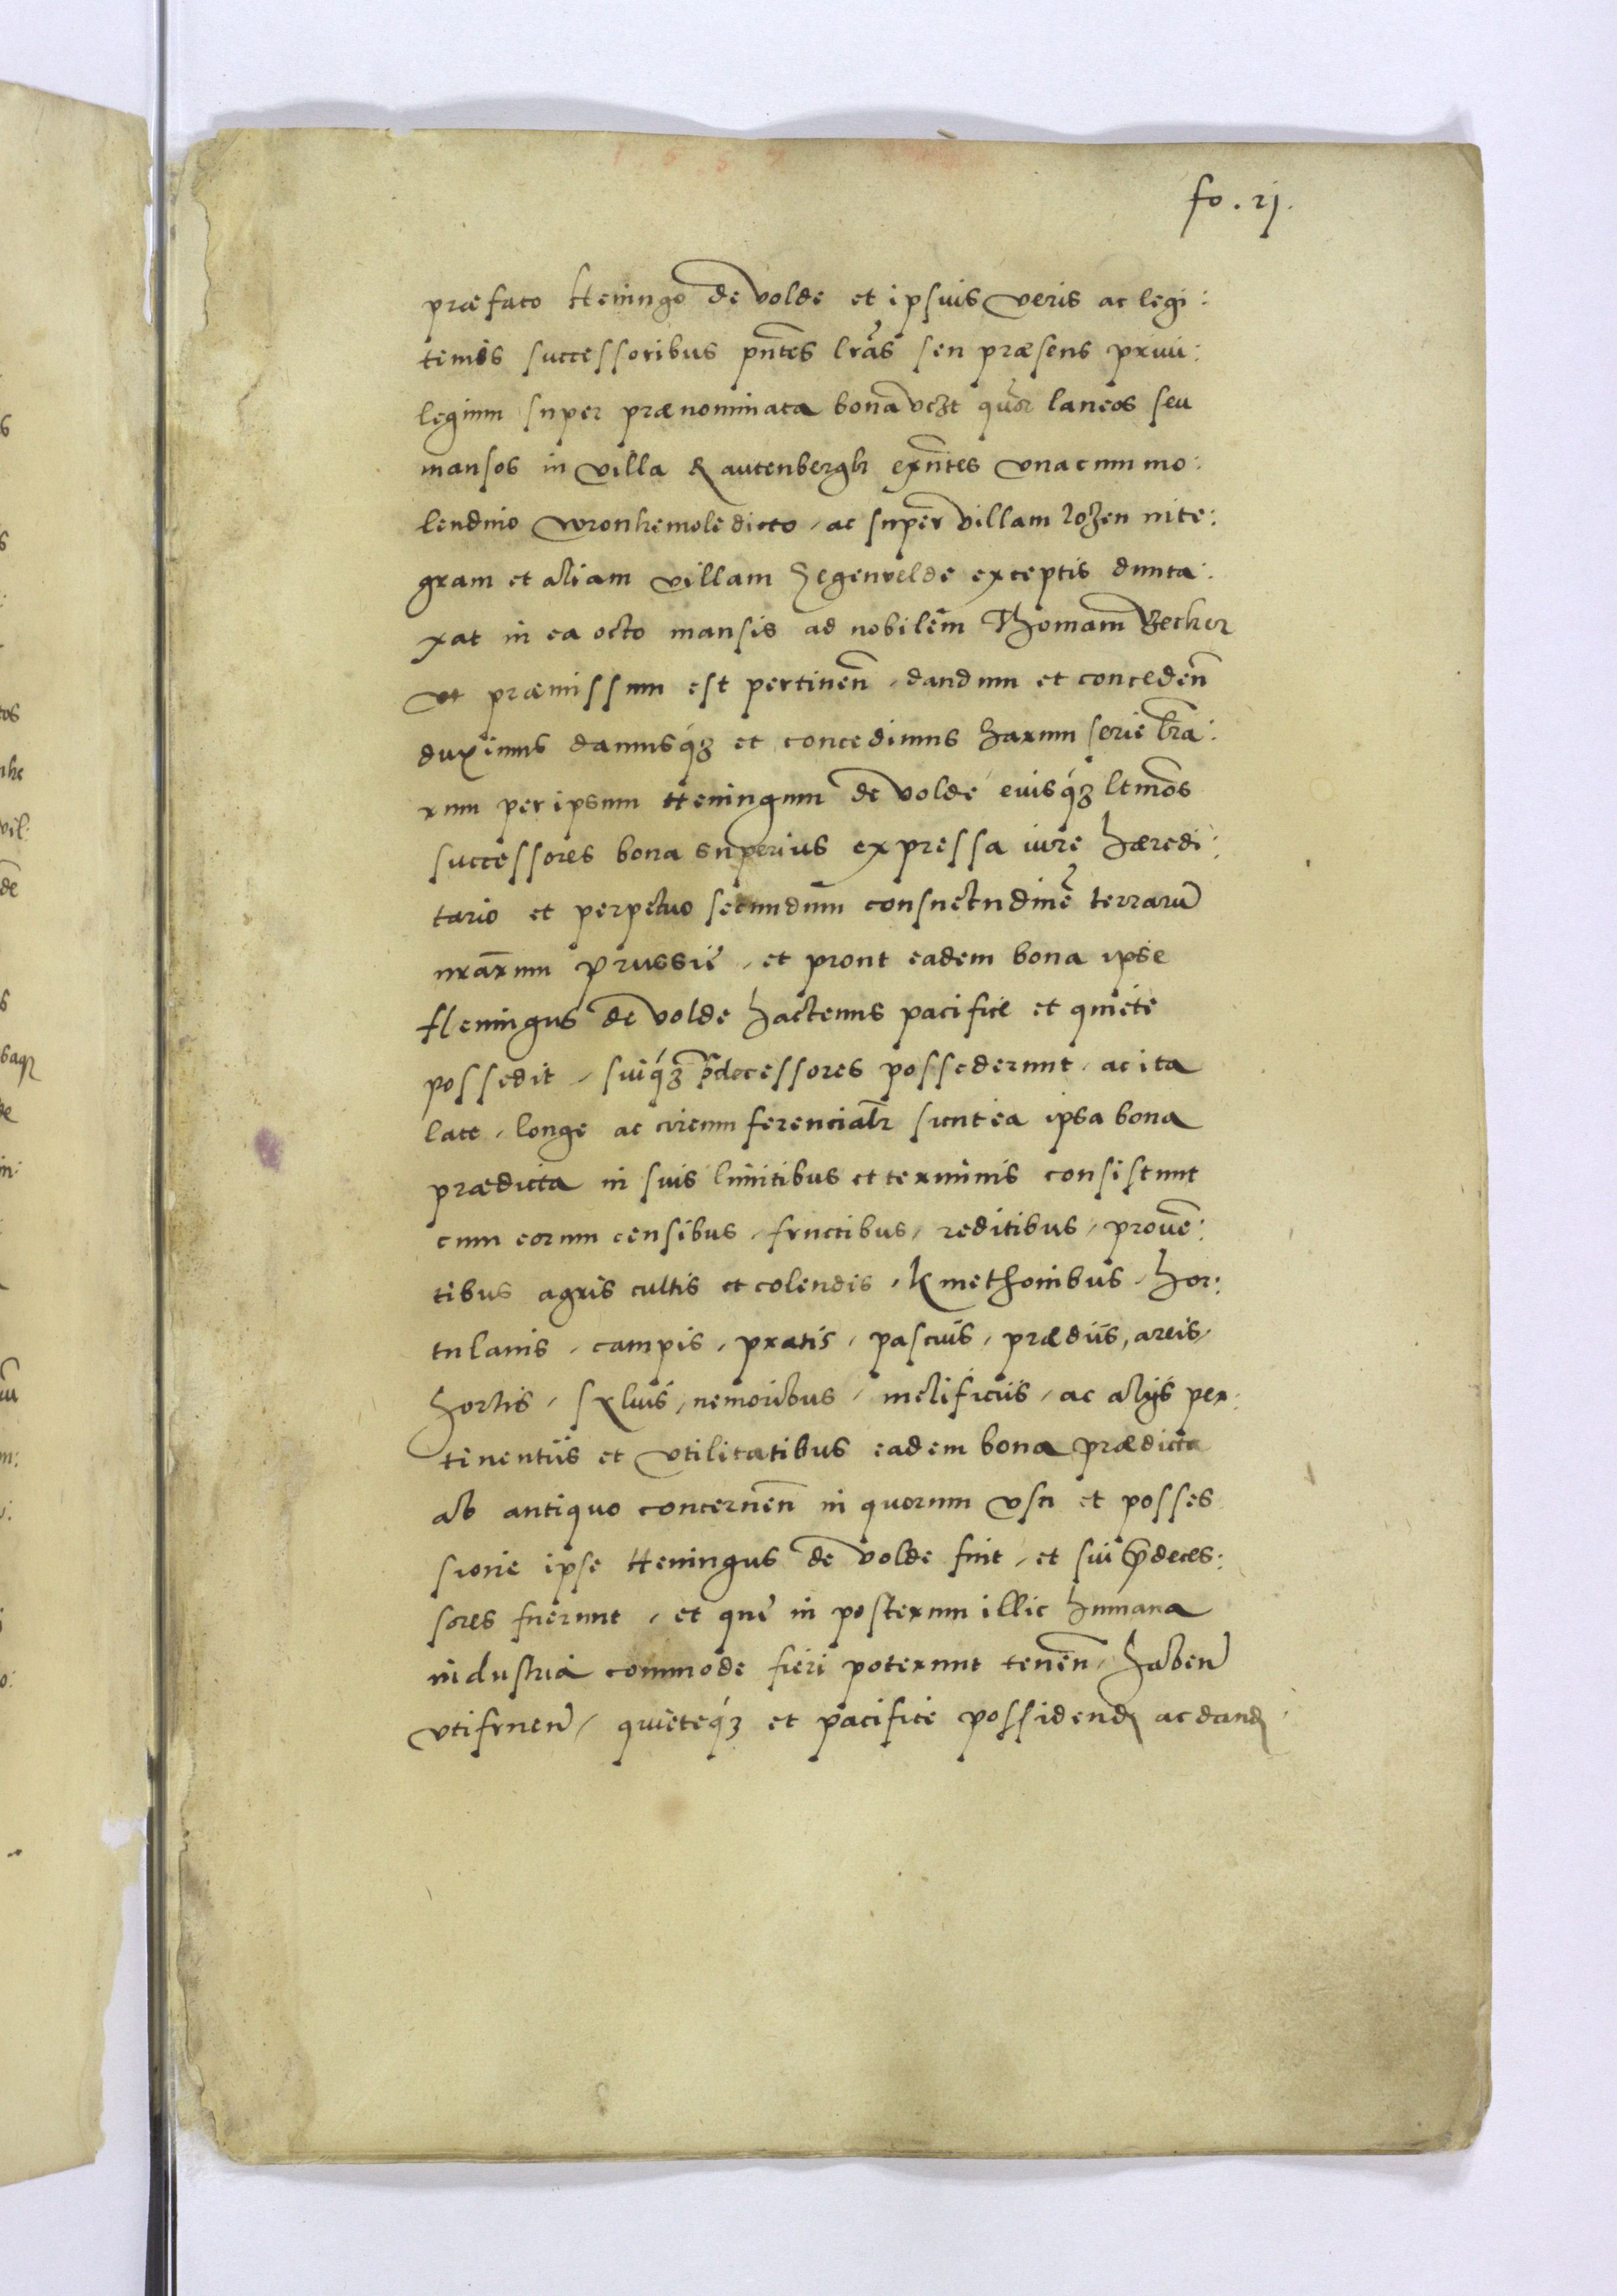 fo. ij.
præfato Heningo de Volde et ipsius veris ac legi:
timis successoribus pn̄tes lrās seu præsens priui:
legium super prænominata bona vczt quōr laneos seu
mansos in villa Rautenbergh exn̄tes vnacum mo:
lendino wronkemole dicto, ac super villam Lozen inte:
gram et aliam villam Hegenvelde exceptis dunta:
xat in ea octo mansis ad nobilem Thomam Becker
vt præmissum est pertinen̄, dandum et conceden̄
duximus damusq́ꝫ et concedimus harum serie lrā:
rum per ipsum Heningum de Volde euisq́ꝫ ltimos
successores bona superius expressa iure hæredi:
tario et perpetuo secundum consuetudinē terrarū
nrārum Prussie, et prout eadem bona ipse
Heningus de Volde hactenus pacifice et quiete
possedit, suiq́ꝫ p̄decessores possederunt, ac ita
late, longe ac circumferencialr̄ sicut ea ipsa bona
prædicta in suis limitibus et terminis consistunt
cum eorum censibus, fructibus, reditibus, prouē:
tibus agris cultis et colendis, kmethonibus, hor:
tulanis, campis, pratis, pascuis, prædiis, areis,
hortis, syluis, nemoribus, mellificiis, ac alijs per:
tinentiis et vtilitatibus eadem bona prædicta
ab antiquo concernen̄ in quorum vsu et posses
sione ipse Heningus de Volde fuit, et sui p̄deces:
sores fuerunt, et que in posterum illic humana
industria commode fieri poterunt tenen̄, haben̄
vtifruen̄, quieteq́ꝫ et pacifice possidenđ ac danđ